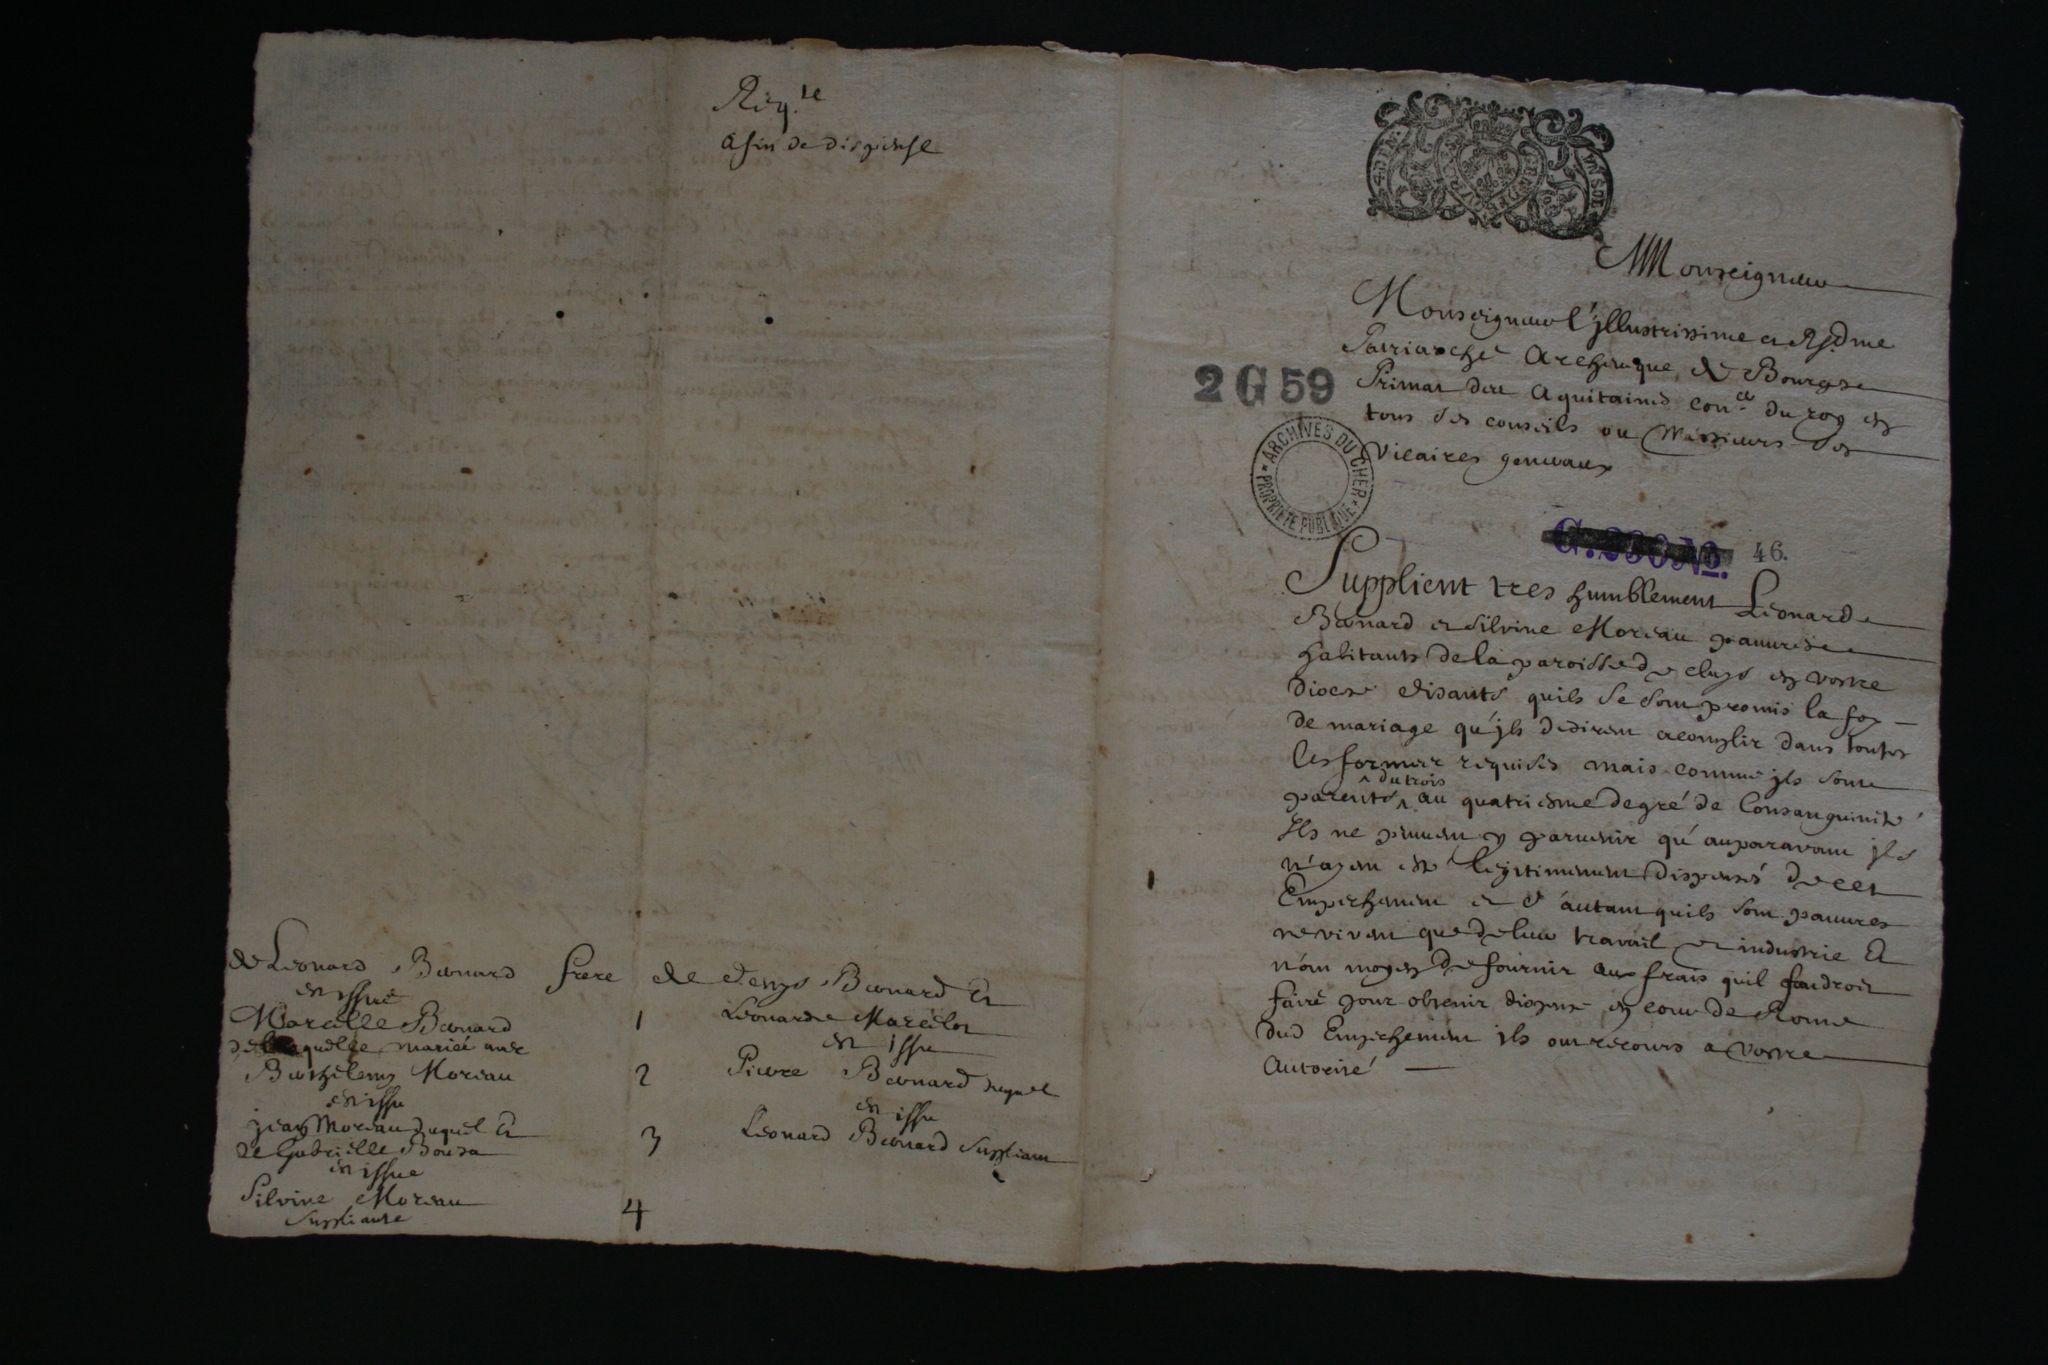 Reqte
afin de dispense
de Leonard Bernard frere de denys Bernard Et
en issue
Marcille Bernard 1 Leonarde Marcilot
de laquelle mariée avec en issu
Barthelemy Moreau 2 Pierre Bernard duquel
en issu en issu
jean Moreau duquel Et 3 Leonard Bernard Suppliant
de Gabrielle
en issue
Silvine Moreau
Suppliante 4
Monseigneur
Monseigneur l'jllustrissime et Rsdme
Patriarche Archeuesque de Bourges
Primat des Aquitaines conser du roy en
tous ses conseils ou Messieurs ses
Vicaires generaux
2 G 59
ARCHIVES DU CHER
PROPRIETE PUBLIQUE
G. No. 46.
Supplient tres humblement Leonard
Bernard et Silvine Moreau pauures
habitants de la paroisse de cluys en vostre
diocese disants quils se sont promis la foy
de mariage qu'jls desirent acomplir dans toutes
les formes requises mais comme jls sont
parents du trois au quatriesme degré de Consanguinité
Ils ne peuuent y paruenir qu'auparauant jls
n'ayent esté legitimement dispensés de cet
Empeschement et d'autant quils sont pauures
ne vivent que de leur travail et industrie Et
n'ont moyen de fournir aux frais quil faudroit
faire pour obtenir dispense en cour de Rome
dud Empeschement ils ont recours a vostre
Autorité